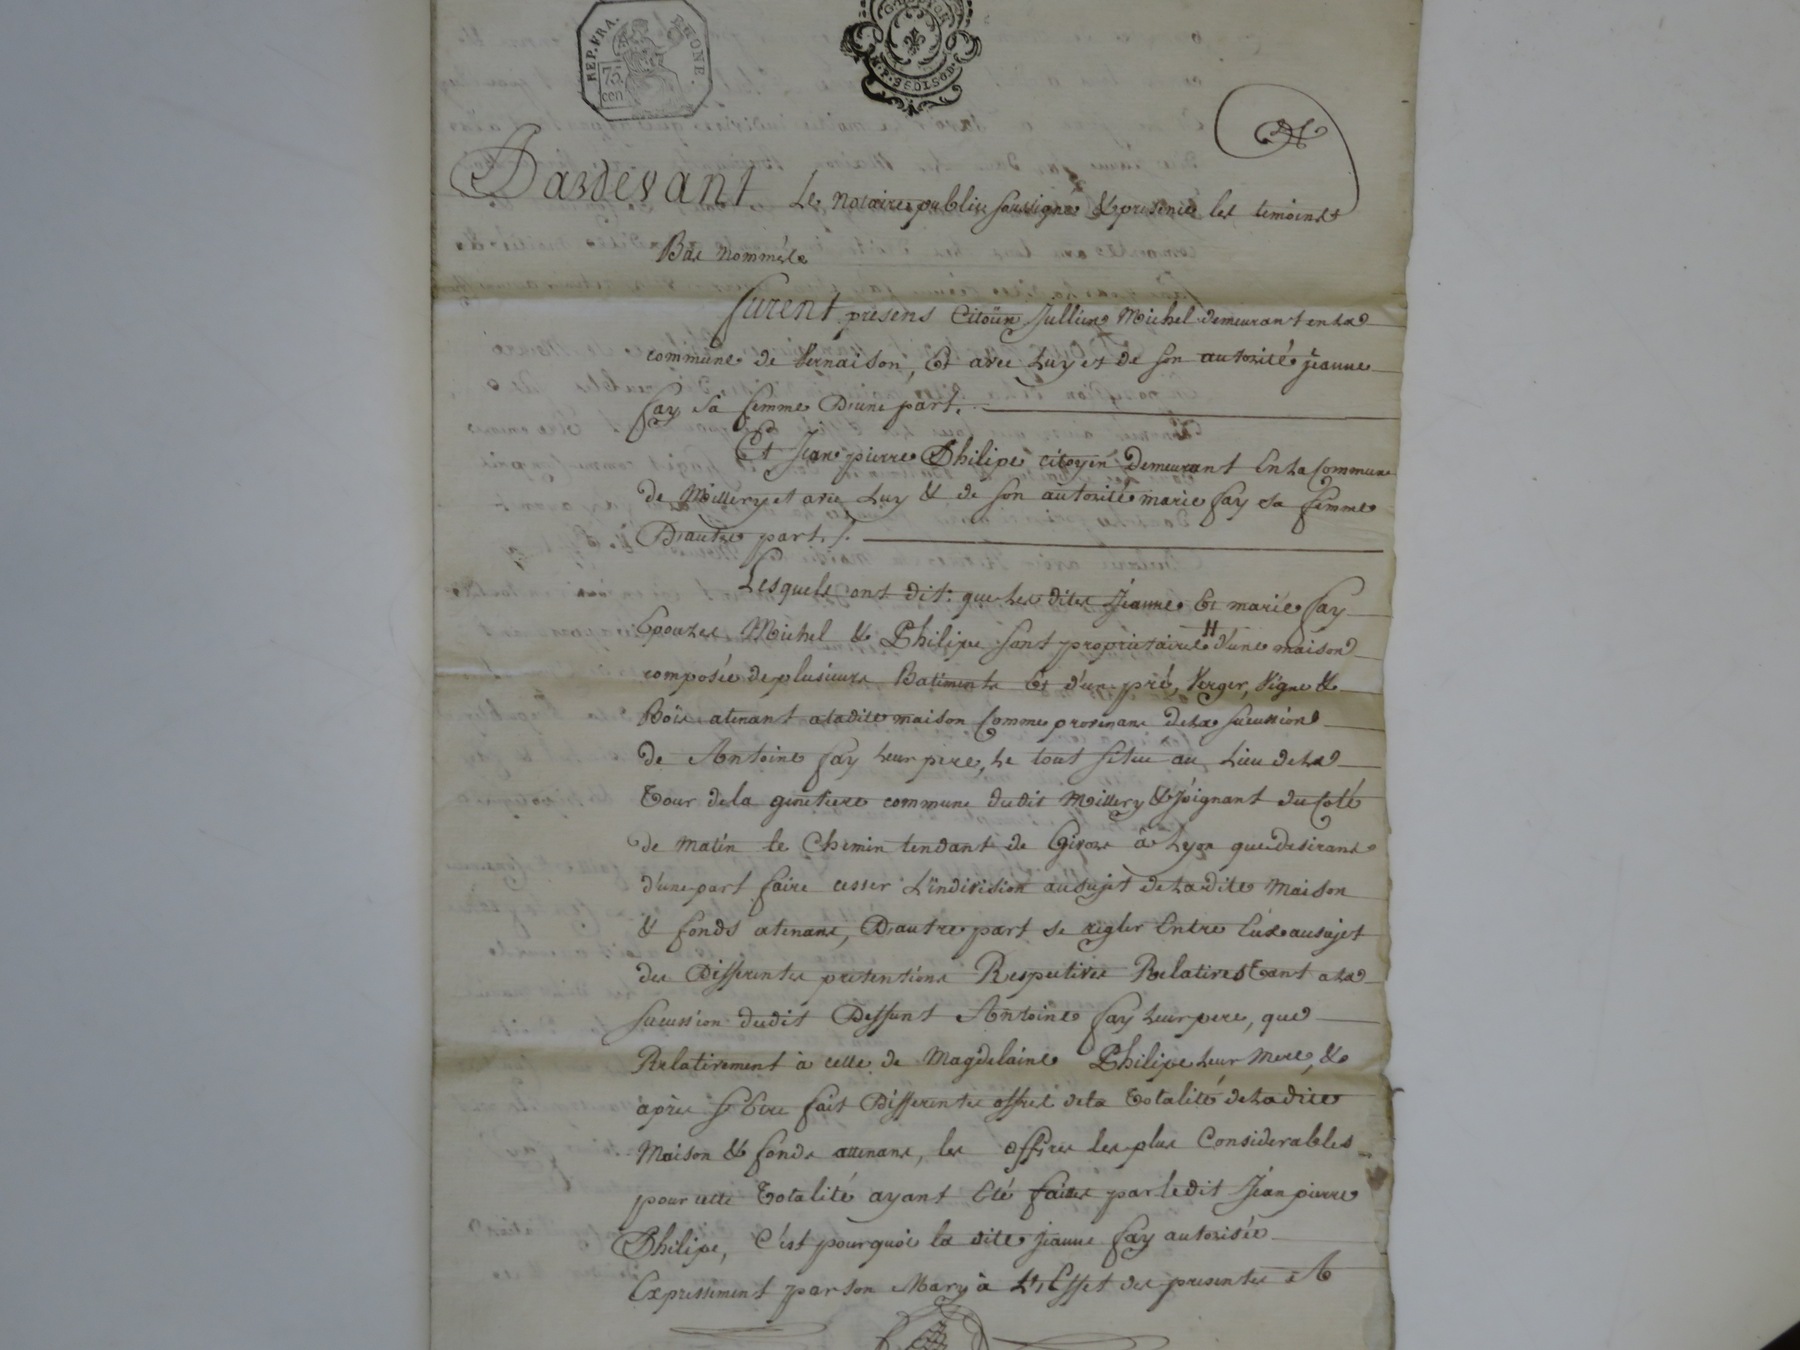 REP. FRA. RHONE.
75 cen
Pardevant Le Notaire public soussigné & presence les temoins
Bas Nommés
furent presens Citoïen Jullien Michel demeurant en La
commune de Vernaison, Et avec Luy et de son autorité jeanne
fay sa femme D'une part.
Et Jean pierre Philipe citoyen Demeurant En La Commune
de Millery et avec Luy & de son autorité marie fay sa femme
D'autre part /.
Lesquels ont dit: que Les dites Jéanne Et marie fay
Epouzes Michel & Philipe sont proprietaires H d'une maison
composée de plusieurs Batiments Et d'un pré, Verger, Vigne &
Bois atenant a ladite maison Comme provenant de La sucussion
de Antoine fay Leur pere, Le tout situé au Lieu de La
Tour de la commune dudit Millery & Joignant du Coté
de Matin le Chemin tendant de Givors à Lyon que desirant
d'une part faire cesser L'indivision au sujet de Ladite Maison
& fonds atenant, D'autre part se regler Entre Eux au sujet
des Differentes pretentions Respectives Relatives Tant a La
sucussion dudit Deffunt Antoine fay Leur pere, que
Relativement à celle de Magdelaine Philipe Leur Mere, &
après s'Etre fait Differentes offres de la Totalité de Ladite
Maison & fonds attenant, les offres Les plus Considerables
pour cette Totalité ayant Eté faittes par ledit Jéan pierre
Philipe, C'est pourquoi la dite jeanne fay autorisée
Expressement par son Mary à L'Effet des presentes A